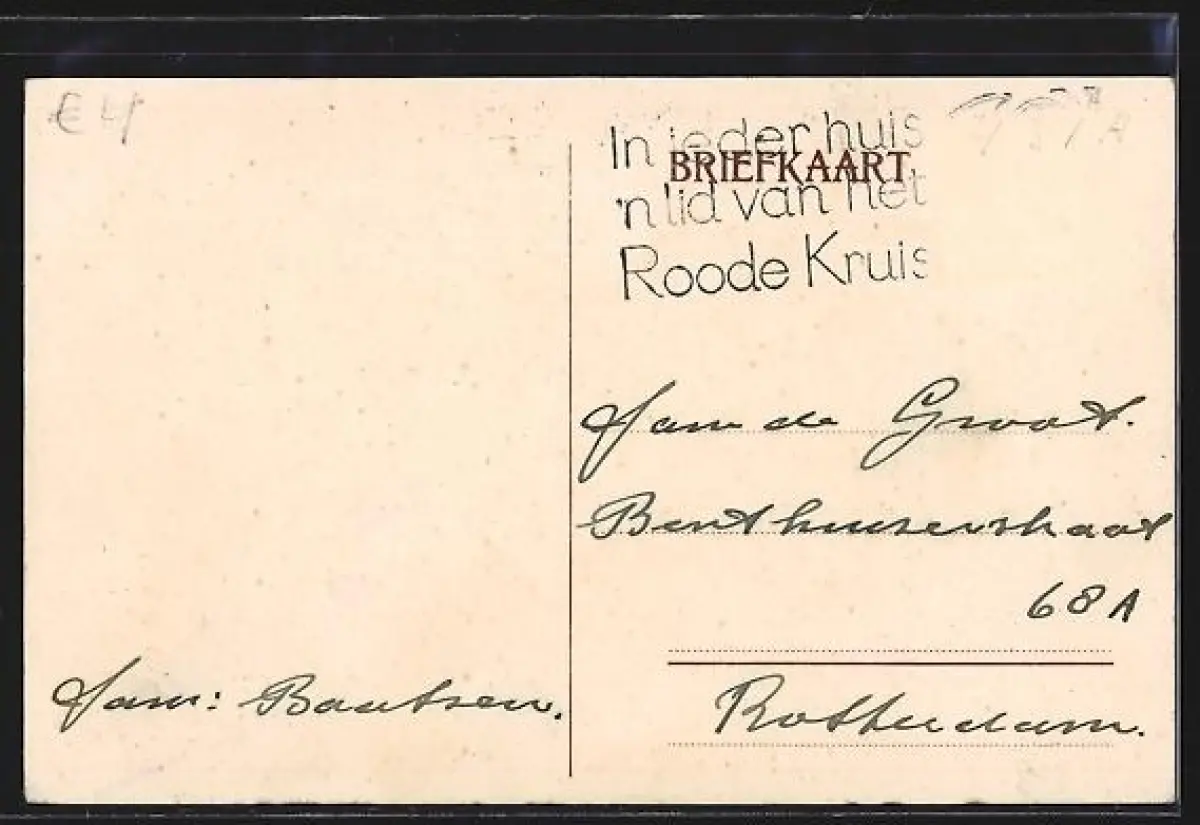 € 4
In ieder huis
BRIEFKAART
'n lid van het
Roode Kruis
Fam de Groot.
Benthuiserstraat
68A
Fam: Baatsen.
Rotterdam.